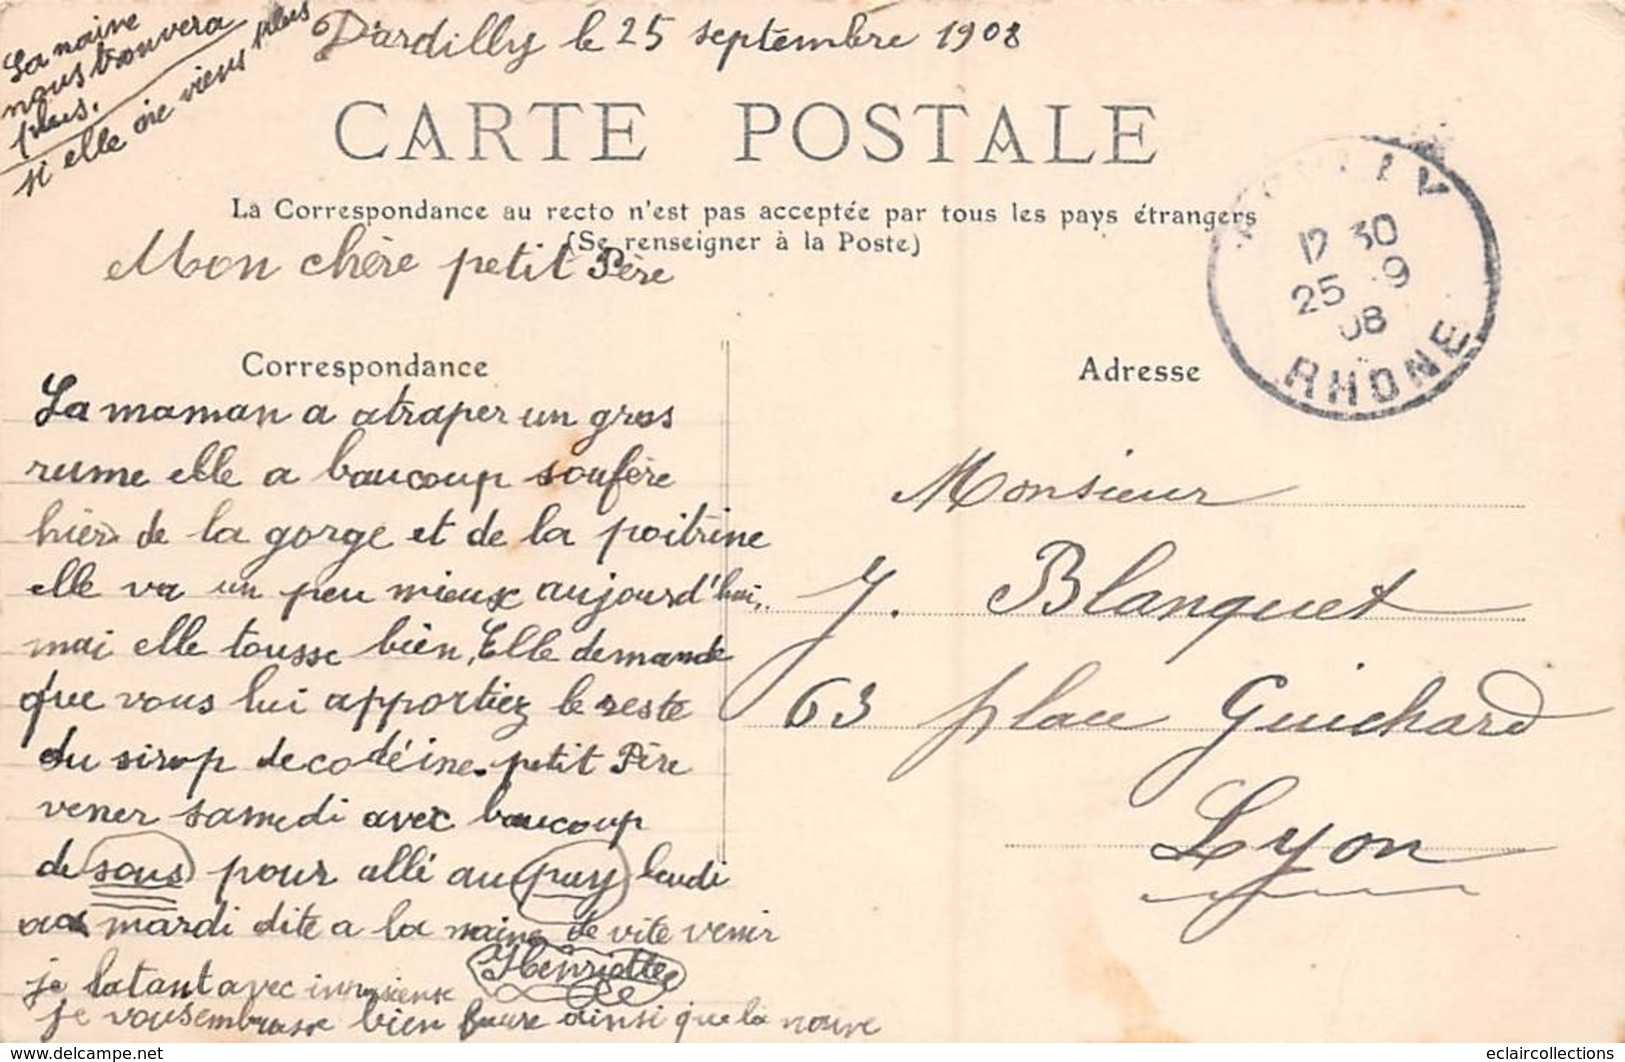 La naine
nous trouvera
plus.
si elle ne viens plus
Dardilly le 25 septembre 1908
CARTE POSTALE
La Correspondance au recto n'est pas acceptée par tous les pays étrangers
(Se renseigner à la Poste)
Mon chère petit Père
12 30
25 -9
08
RHONE
Correspondance
Adresse
La maman a atraper un gros
rume elle a baucoup soufère
hier de la gorge et de la poitrine
elle va un peu mieux aujourd'hui,
mai elle tousse bien, Elle demande
que vous lui apportiez le reste
du sirop de codéine. petit Père
vener samedi avec baucoup
de sous pour allé au puy lundi
ou mardi dite a la naine de vite venir
je latant avec Henriette
je vous embrasse bien ainsi que la
Monsieur
J. Blanquet
63 place Guichard
Lyon
eclaircollections
www.delcampe.net